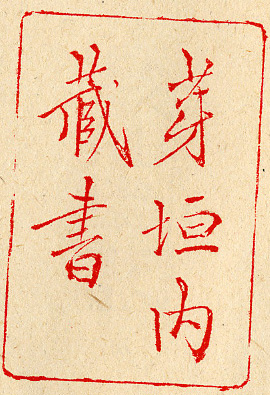 芽垣内
蔵書